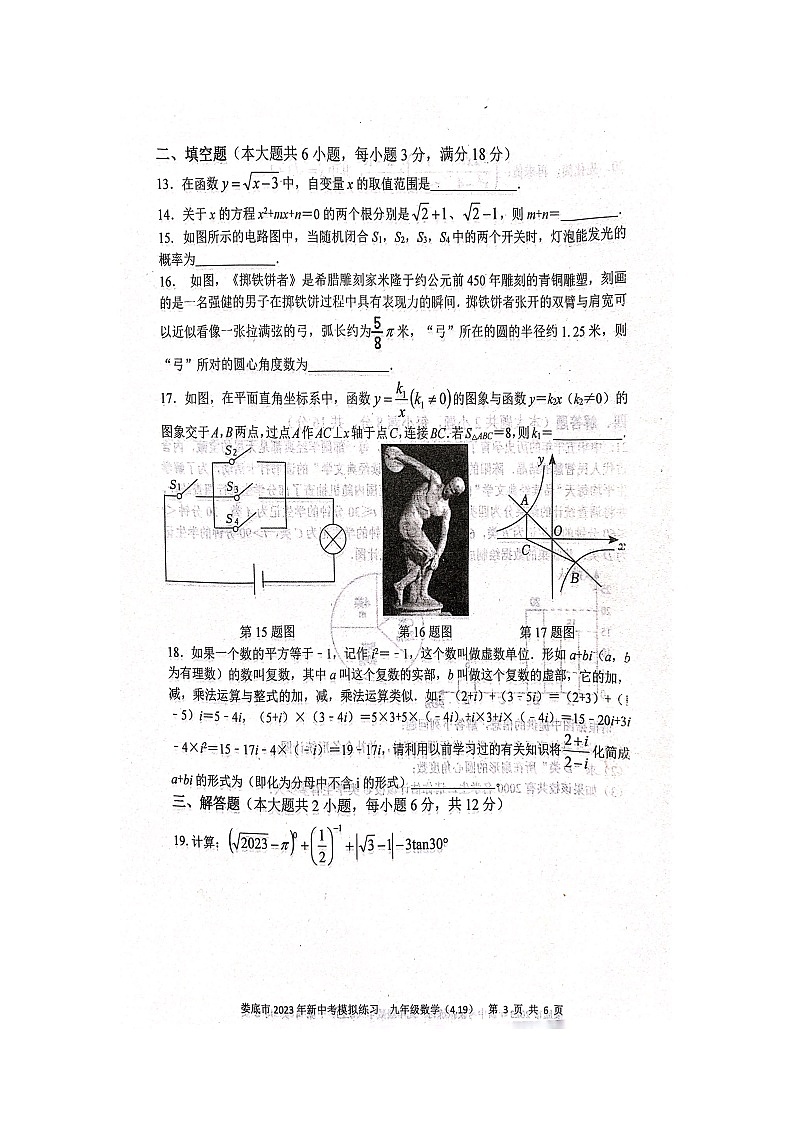 二、填空题（本大题共 6 小题，每小题 3 分，满分 18 分）
13．在函数 y=√(x−3) 中，自变量 x 的取值范围是____________．
14．关于 x 的方程 x²+mx+n=0 的两个根分别是 √2+1、√2−1，则 m+n=________．
15．如图所示的电路图中，当随机闭合 S₁，S₂，S₃，S₄ 中的两个开关时，灯泡能发光的
概率为____________．
16．如图，《掷铁饼者》是希腊雕刻家米隆于约公元前 450 年雕刻的青铜雕塑，刻画
的是一名强健的男子在掷铁饼过程中具有表现力的瞬间．掷铁饼者张开的双臂与肩宽可
以近似看像一张拉满弦的弓，弧长约为 5/8 π 米，“弓”所在的圆的半径约 1.25 米，则
“弓”所对的圆心角度数为____________．
17．如图，在平面直角坐标系中，函数 y=k₁/x (k₁≠0) 的图象与函数 y=k₂x（k₂≠0）的
图象交于 A，B 两点，过点 A 作 AC⊥x 轴于点 C，连接 BC．若 S△ABC=8，则 k₁=__________．
S₂
S₁
S₃
S₄
y
A
O
C
x
B
第 15 题图 第 16 题图 第 17 题图
18．如果一个数的平方等于﹣1，记作 i²=﹣1，这个数叫做虚数单位．形如 a+bi（a，b
为有理数）的数叫复数，其中 a 叫这个复数的实部，b 叫做这个复数的虚部，它的加，
减，乘法运算与整式的加，减，乘法运算类似．如：（2+i）+（3﹣5i）=（2+3）+（1
﹣5）i=5﹣4i，（5+i）×（3﹣4i）=5×3+5×（﹣4i）+i×3+i×（﹣4i）=15﹣20i+3i
﹣4×i²=15﹣17i﹣4×（﹣i）=19﹣17i，请利用以前学习过的有关知识将 (2+i)/(2−i) 化简成
a+bi 的形式为（即化为分母中不含 i 的形式）____________．
三、解答题（本大题共 2 小题，每小题 6 分，共 12 分）
19.计算：(√2023−π)⁰+(1/2)⁻¹+|√3−1|−3tan30°
娄底市 2023 年新中考模拟练习 九年级数学（4.19） 第 3 页 共 6 页